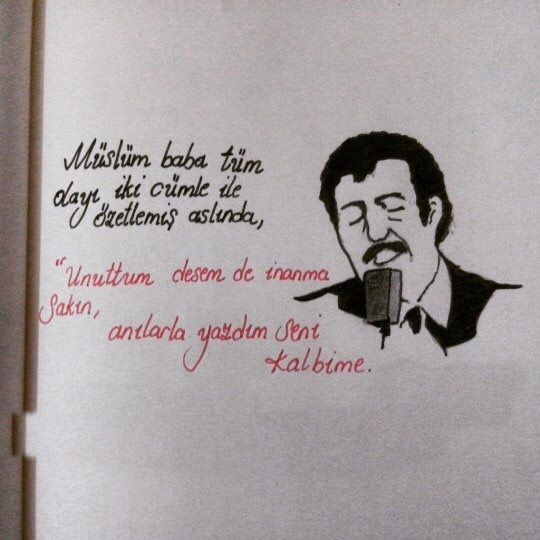 Müslüm baba tüm
olayı iki cümle ile
özetlemiş aslında,
"Unuttum desem de inanma
sakın,
anılarla yazdım seni
kalbime.